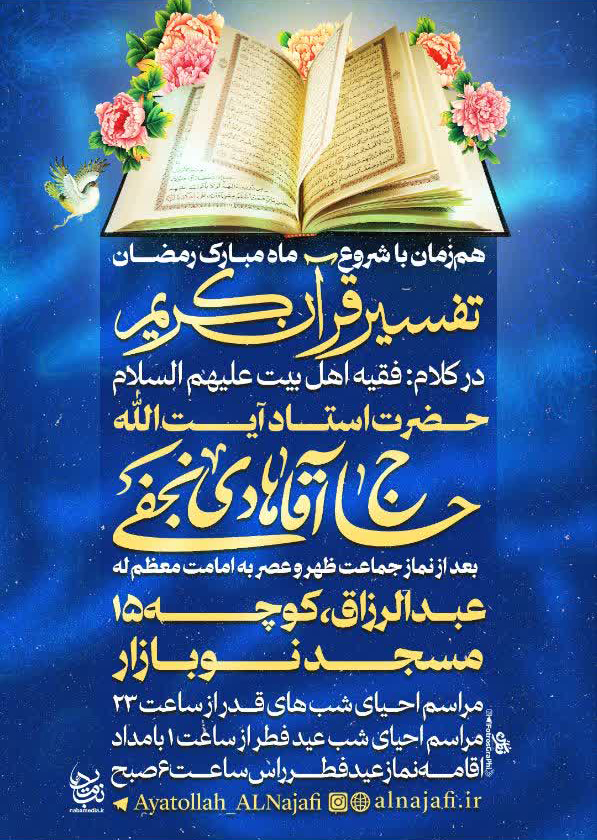 هم‌زمان با شروع ماه مبارک رمضان
تفسیر قرآن کریم
در کلام: فقیه اهل بیت علیهم السلام
حضرت استاد آیت الله
حاج آقا هادی نجفی
بعد از نماز جماعت ظهر و عصر به امامت معظم له
عبدالرزاق، کوچه ۱۵
مسجد نو بازار
مراسم احیای شب های قدر از ساعت ۲۳
مراسم احیای شب عید فطر از ساعت ۱ بامداد
اقامه نماز عید فطر راس ساعت ۶ صبح
Ayatollah_ALNajafi alnajafi.ir
nabamedia.ir